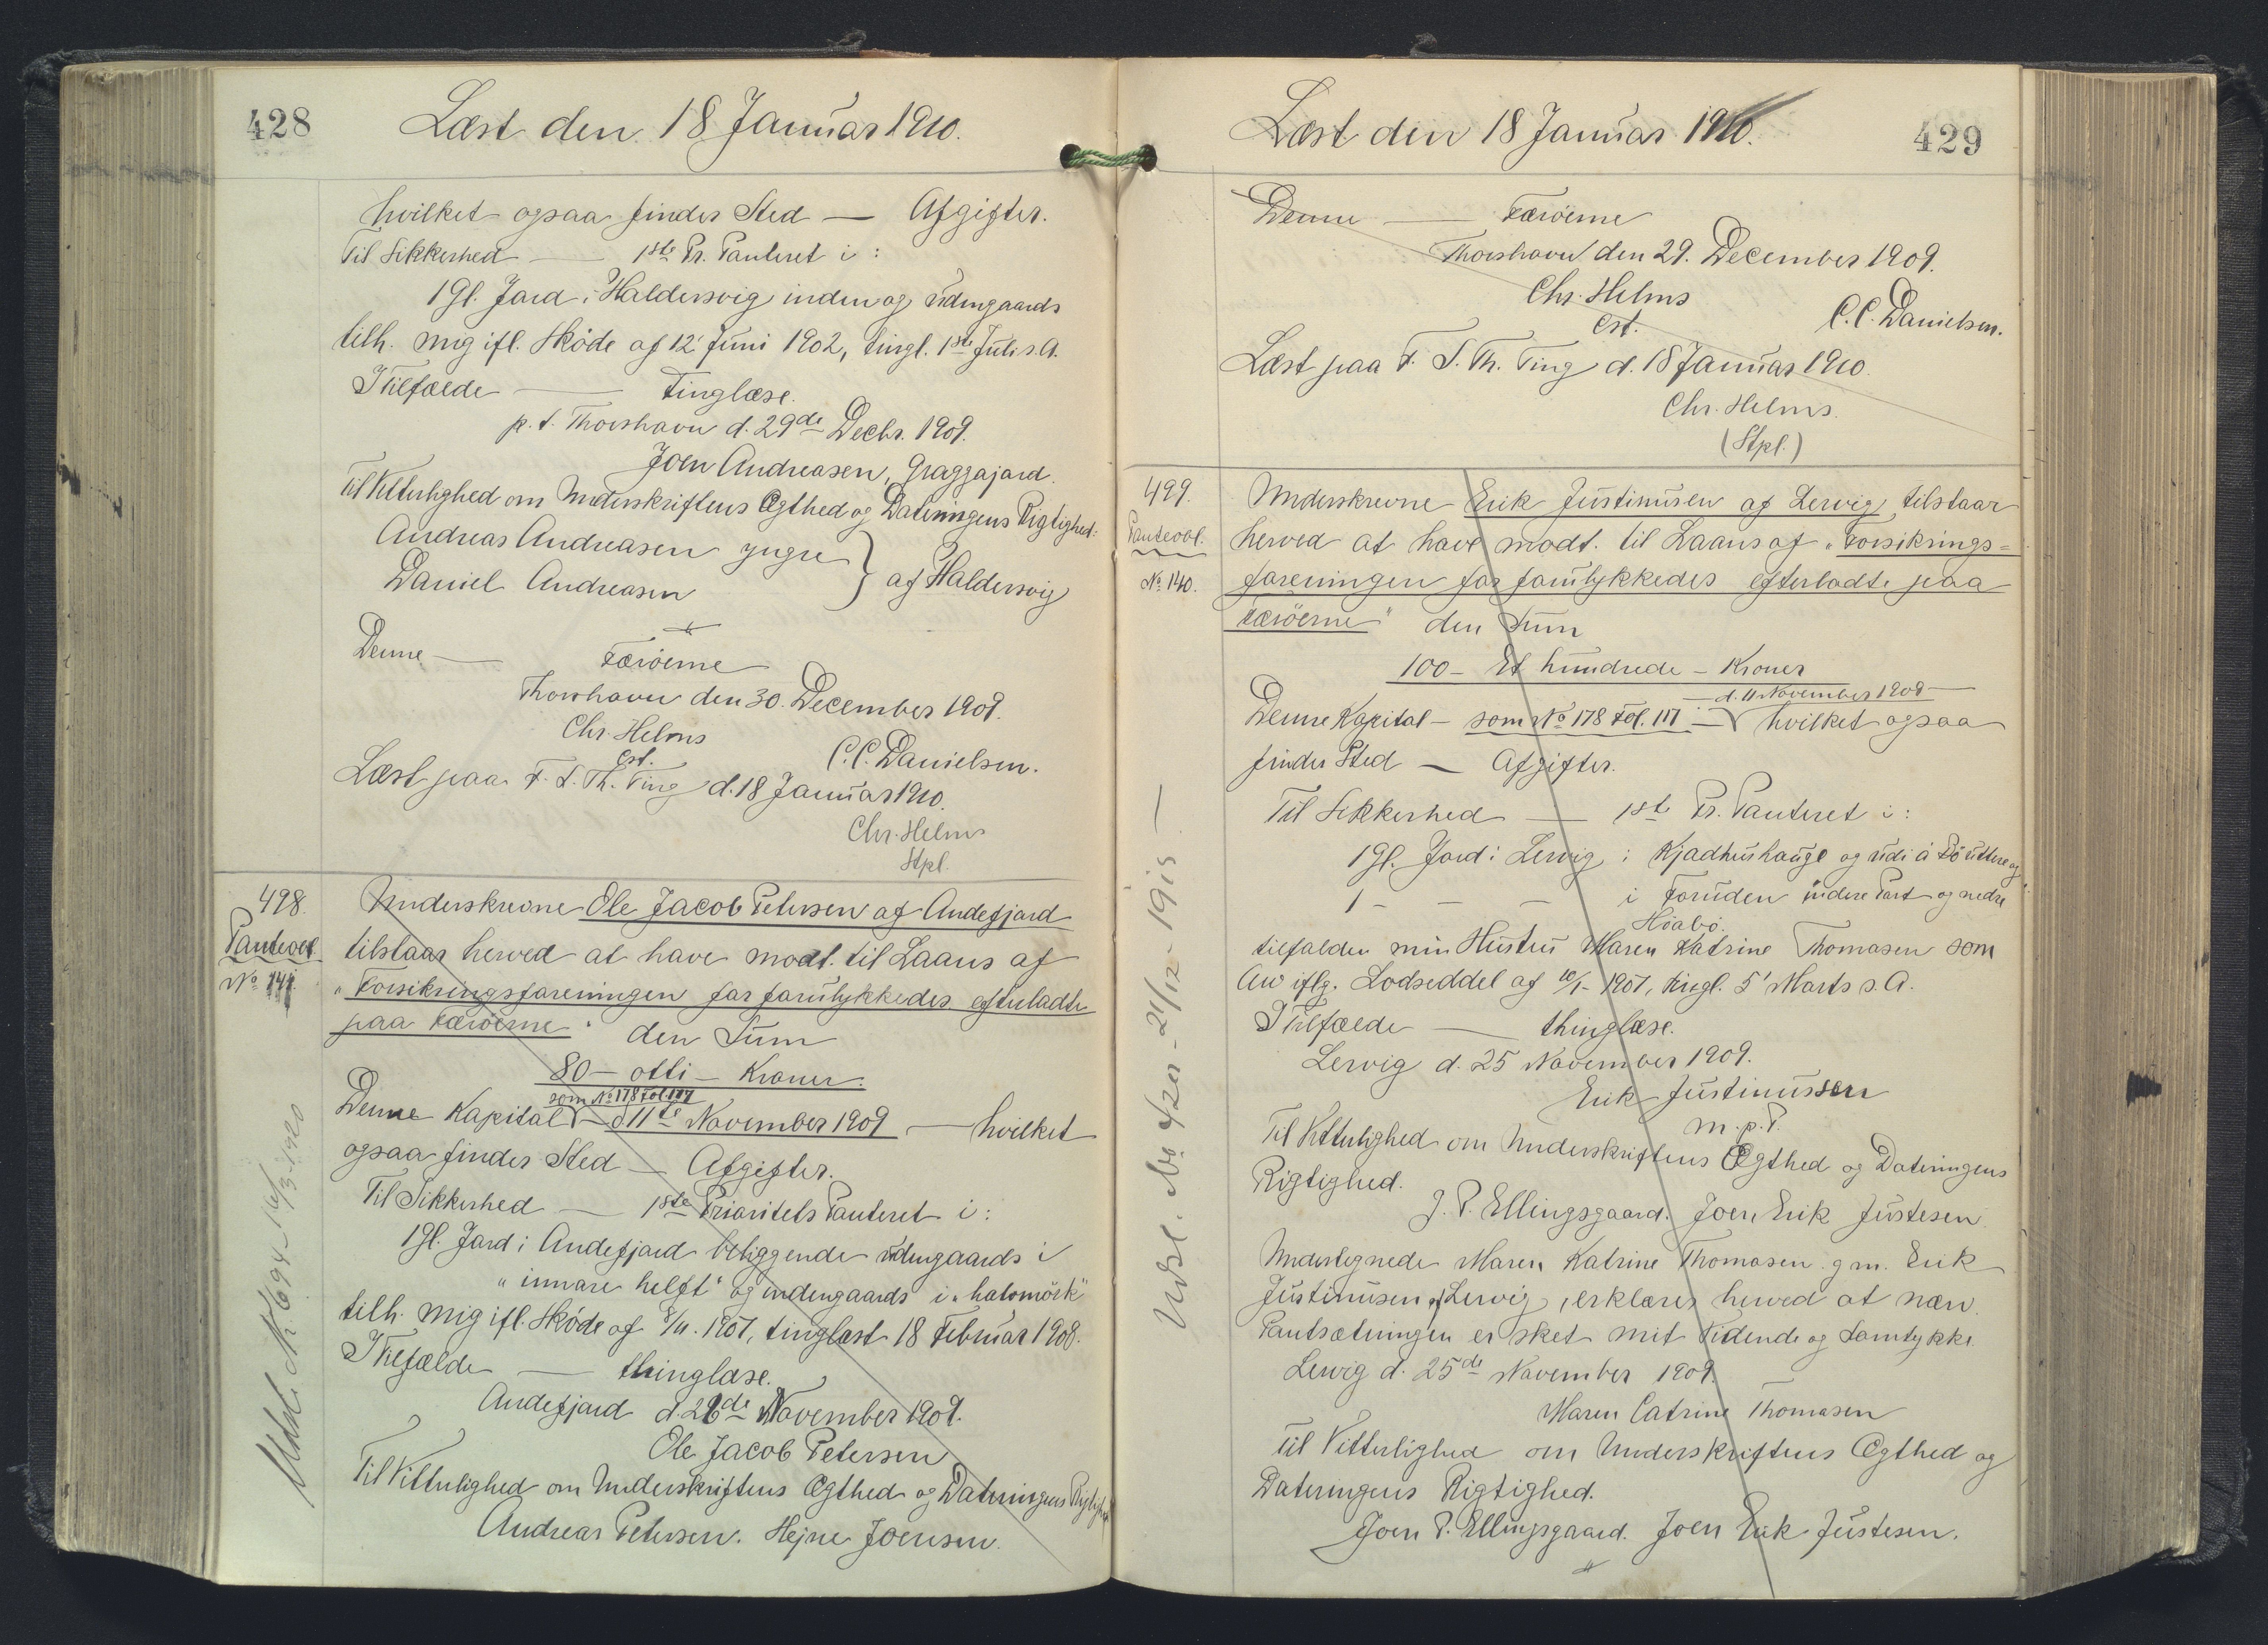 428
Læst den 18 Januar 1910.
hvilket ogsaa finder Sted — Afgifter.
Til Sikkerhed — 1ste Pr. Panteret i:
1 Gl. Jord i Haldersvig inden og udengaards
tilh. mig ifl. Skøde af 12' Juni 1902, tingl. 1ste Juli s. A.
I Tilfælde — tinglæse.
p. t. Thorshavn d. 29de Decbr. 1909.
Joen Andreasen, Graggajord.
Til Vitterlighed om Underskriftens Ægthed og Dateringens Rigtighed:
Andreas Andreasen yngre
Daniel Andreasen } af Haldersvig
Denne — Færöerne
Thorshavn den 30. December 1909.
Chr. Helms
cst.
C. C. Danielsen.
Læst paa F. S. Th. Ting d. 18 Januar 1910.
Chr. Helms
Stpl.
498.
Panteobl.
No 141
Underskrevne Ole Jacob Petersen af Andefjord
tilstaar herved at have modt. til Laans af
"Forsikringsforeningen for forulykkedes efterladte
paa Færöerne" den Sum
80 — otti — Kroner.
som No 178 Fol. 117
Denne Kapital — d 11te November 1909 — hvilket
ogsaa finder Sted — Afgifter.
Til Sikkerhed — 1ste Prioritets Panteret i:
1 Gl. Jord i Andefjord beliggende udengaards i
"innare helft" og indengaards i "hatomörk"
tilh. mig ifl. Skøde af 8/11. 1907, tinglæst 18 Februar 1908.
I Tilfælde — thinglæse.
Andefjord d. 26de November 1909.
Ole Jacob Petersen
Til Vitterlighed om Underskriftens Ægthed og Dateringens Rigtighed
Andreas Petersen. Hejne Joensen.
Udsl. Nr. 694 - 16/3 1920
Læst den 18 Januar 1910.
429
Denne — Færöerne
Thorshavn den 29. December 1909.
Chr. Helms
cst.
C. C. Danielsen.
Læst paa F. S. Th. Ting d. 18 Januar 1910.
Chr. Helms.
(Stpl.)
499.
Panteobl.
No 140.
Underskrevne Erik Justinusen af Lervig, tilstaar
herved at have modt. til Laans af "Forsikrings=
foreningen for forulykkedes efterladte paa
Færöerne" den Sum
100 — Et hundrede — Kroner
— d. 11 November 1909 —
Denne Kapital — som No 178 Fol. 117 — hvilket ogsaa
finder Sted — Afgifter.
Til Sikkerhed — 1ste Pr. Panteret i:
1 Gl. Jord i Lervig i Kjadhushauge og udi á Bö uttere og
1 - - - i Foruden indere Part og nedre
Höabö.
tilfalden min Hustru Maren Katrine Thomasen som
Arv iflg. Lodseddel af 10/1 - 1907, tingl. 5' Marts s. A.
I Tilfælde — thinglæse.
Lervig d. 25 November 1909.
Erik Justinussen
m. p. P.
Til Vitterlighed om Underskriftens Ægthed og Dateringens
Rigtighed.
J. P. Ellingsgaard. Joen Erik Justesen
Undertegnede Maren Katrine Thomasen g. m. Erik
Justinusen af Lervig, erklærer herved at næv.
Pantsætningen er sket mit Vidende og Samtykke.
Lervig d. 25de November 1909.
Maren Catrine Thomasen
Til Vitterlighed om Underskriftens Ægthed og
Dateringens Rigtighed.
Joen P. Ellingsgaard. Joen Erik Justesen.
Udsl. No 4/20 - 21/12 - 1915 —